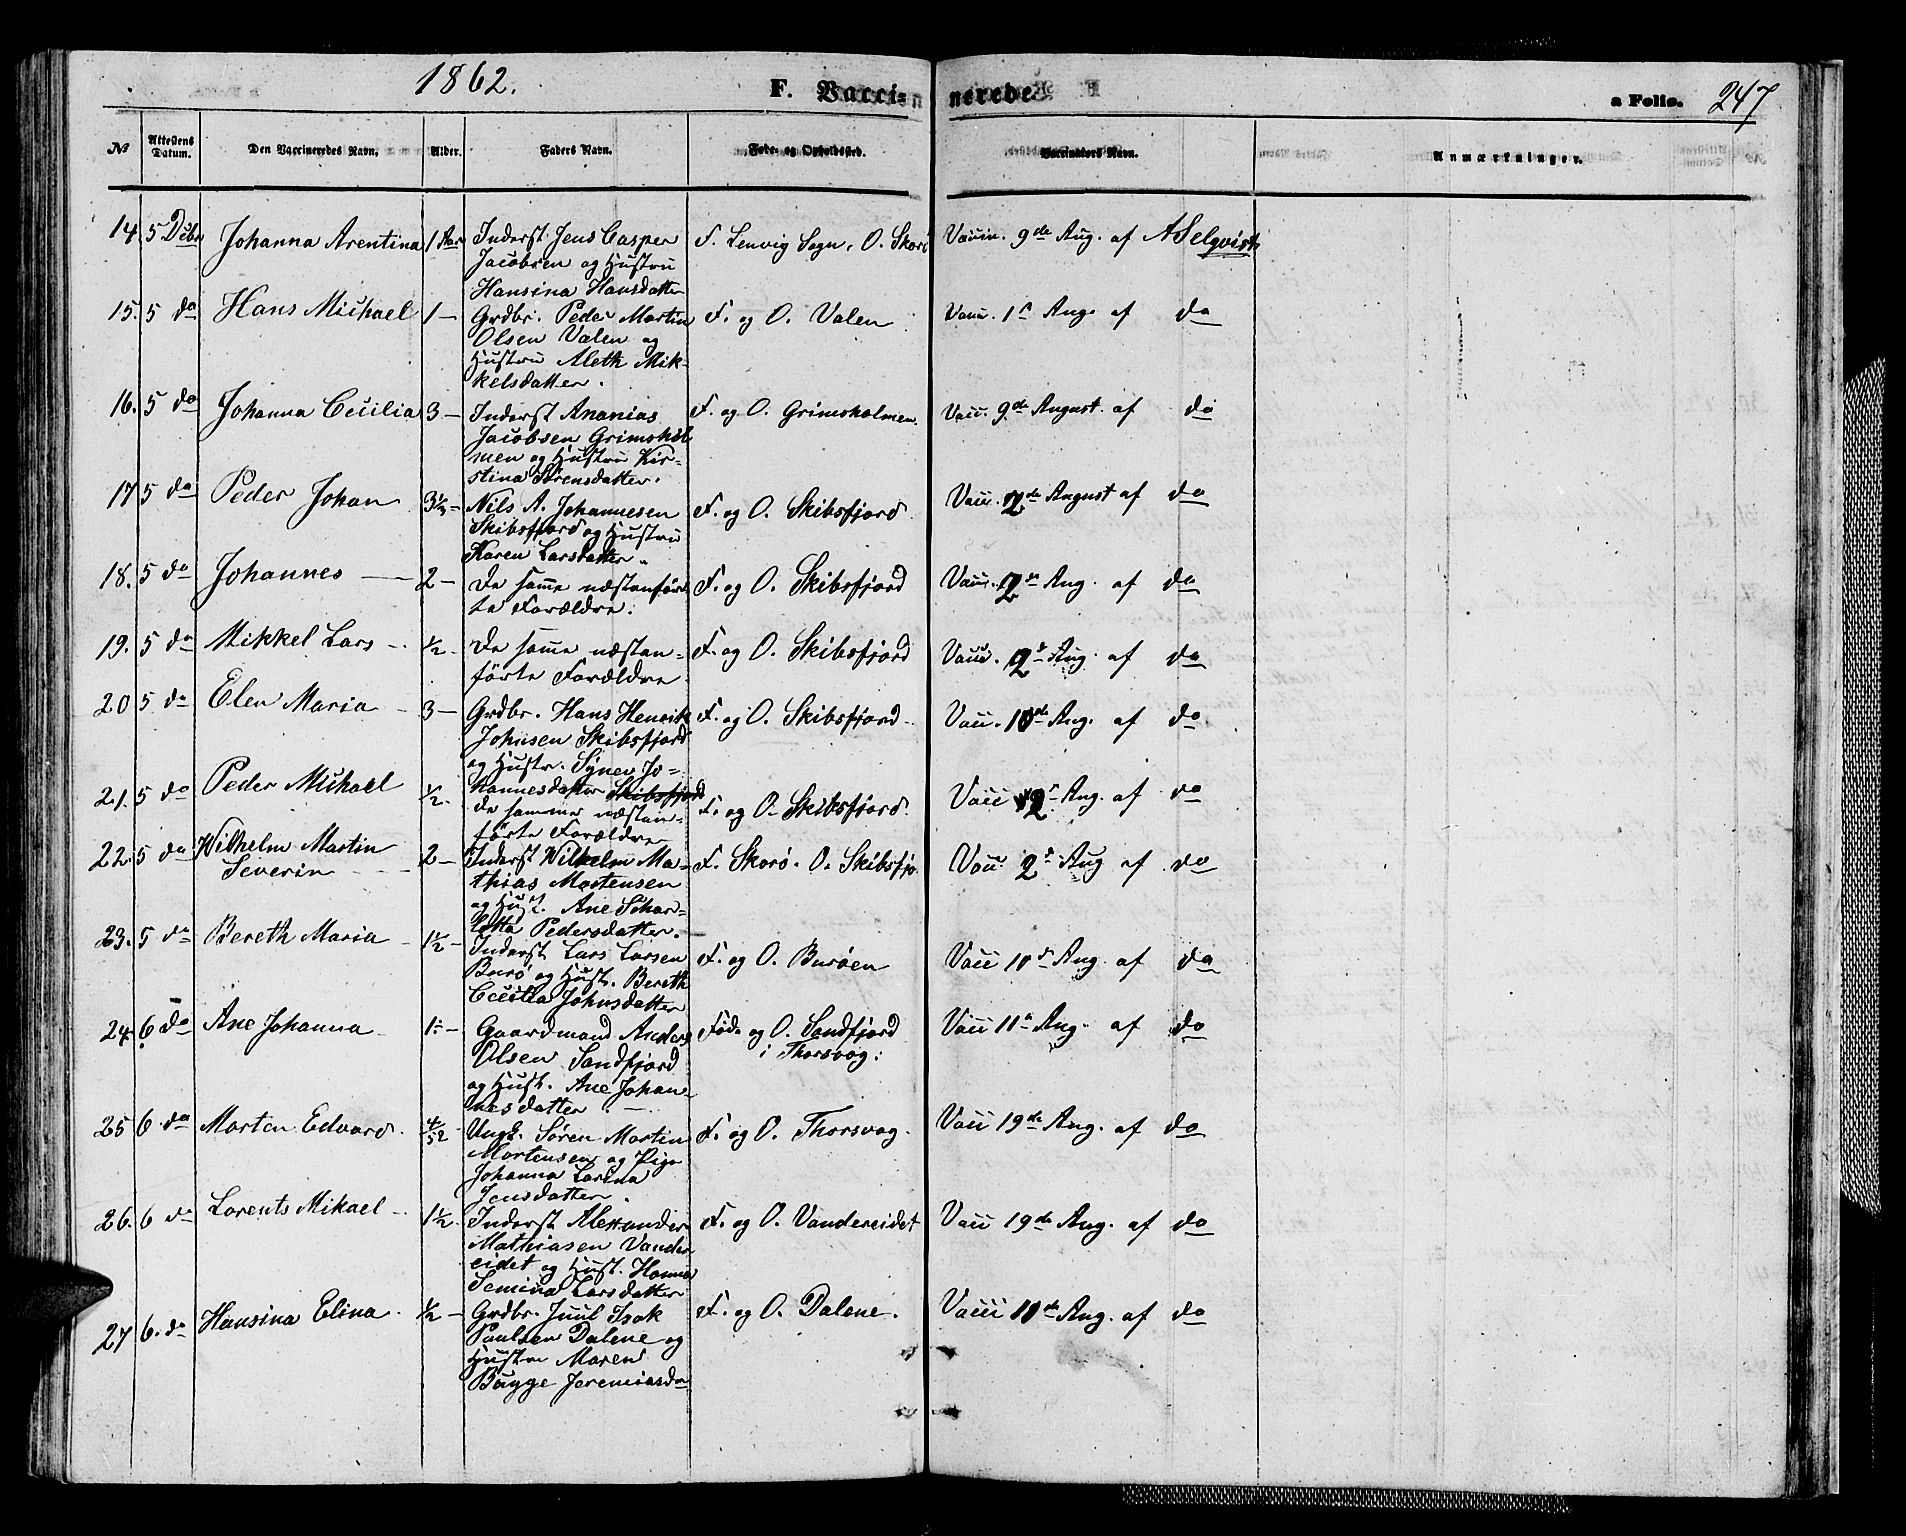 1862.
F. Vacci- nerede
a Folio. 247
№ Attestens Datum. Den Vaccineredes Navn. Alder. Faders Navn. Føde- og Opholdssted. Vaccinators Navn. Anmærkninger.
14. 5 Debr Johanna Arentina 1 Aar Inderst Jens Casper F. Lenvig Sogn, O. Skorö Vaccin. 9de Aug. af A Selqvist
Jacobsen og Hustru
Hansina Hansdatter
15. 5 do Hans Michael 1 — Grdbr. Peder Martin F. og O. Valen Vacc. 1st Aug. af do
Olsen Valen og
Hustru Aleth Mik-
kelsdatter.
16. 5 do Johanna Cecilia 3 — Inderst Ananias F. og O. Grimsholmen. Vacc. 9de August. af do
Jacobsen Grimshol
men og Hustru Kir-
stina Sørensdatter.
17 5 do Peder Johan 3½ — Nils A. Johannesen F. og O. Skibsfjord Vacc. 2de August af do
Skibsfjord og Hustru
Karen Larsdatter
18. 5 do Johannes — 2 — De samme næstanför F. og O. Skibsfjord Vacc. 2de Aug. af do
te Forældre.
19. 5 do Mikkel Lars — ½ — De samme næstan- F. og O. Skibsfjord Vacc. 2de Aug. af do
förte Forældre
20 5 do Elen Maria — 3 — Grdbr. Hans Henrik F. og O. Skibsfjord Vacc. 10de Aug. af do
Johnsen Skibsfjord
og Hustr. Synev Jo-
hannesdatter Skibsfjord
21. 5 do Peder Michael ½ — De samme næstan- F. og O. Skibsfjord. Vacc 2 Aug. af do
förte Forældre
22. 5 do Wilhelm Martin 2 — Inderst Wilhelm Ma- F. Skorö. O. Skibsfjo. Vacc 2 Aug af do
Severin thias Mortensen
og Hust. Ane Schar-
lotta Pedersdatter.
23. 5 do Bereth Maria — 1½ — Inderst Lars Larsen F. og O. Buröen Vacc 10 Aug. af do
Burö og Hust. Bereth
Cecilia Johnsdatter
24 6 do Ane Johanna — 1 — Gaardmand Anders Föd. og O. Sandfjord Vacc 11 Aug. af do
Olsen Sandfjord i Thorsvog:
og Hust. Ane Johan-
nesdatter.
25 6 do Morten Edvard. 4/52 Ungk. Sören Martin F. og O. Thorsvog. Vacc 19de Aug. af do
Mortensen og Pige
Johanna Larina
Jensdatter.
26. 6 do Lorents Mikael — 1½. Inderst Alexander F. og O. Vandereidet Vacc 19de Aug. af do
Mathiasen Vander
eidet og Hust. Hanna
Semina Larsdatter
27 6. do Hansina Elina. ½ — Grdbr. Juul Isak F. og O. Dalene. Vacc 10de Aug. af do
Paulsen Dalene og
Hustru Maren
Bugge Jeremiasda